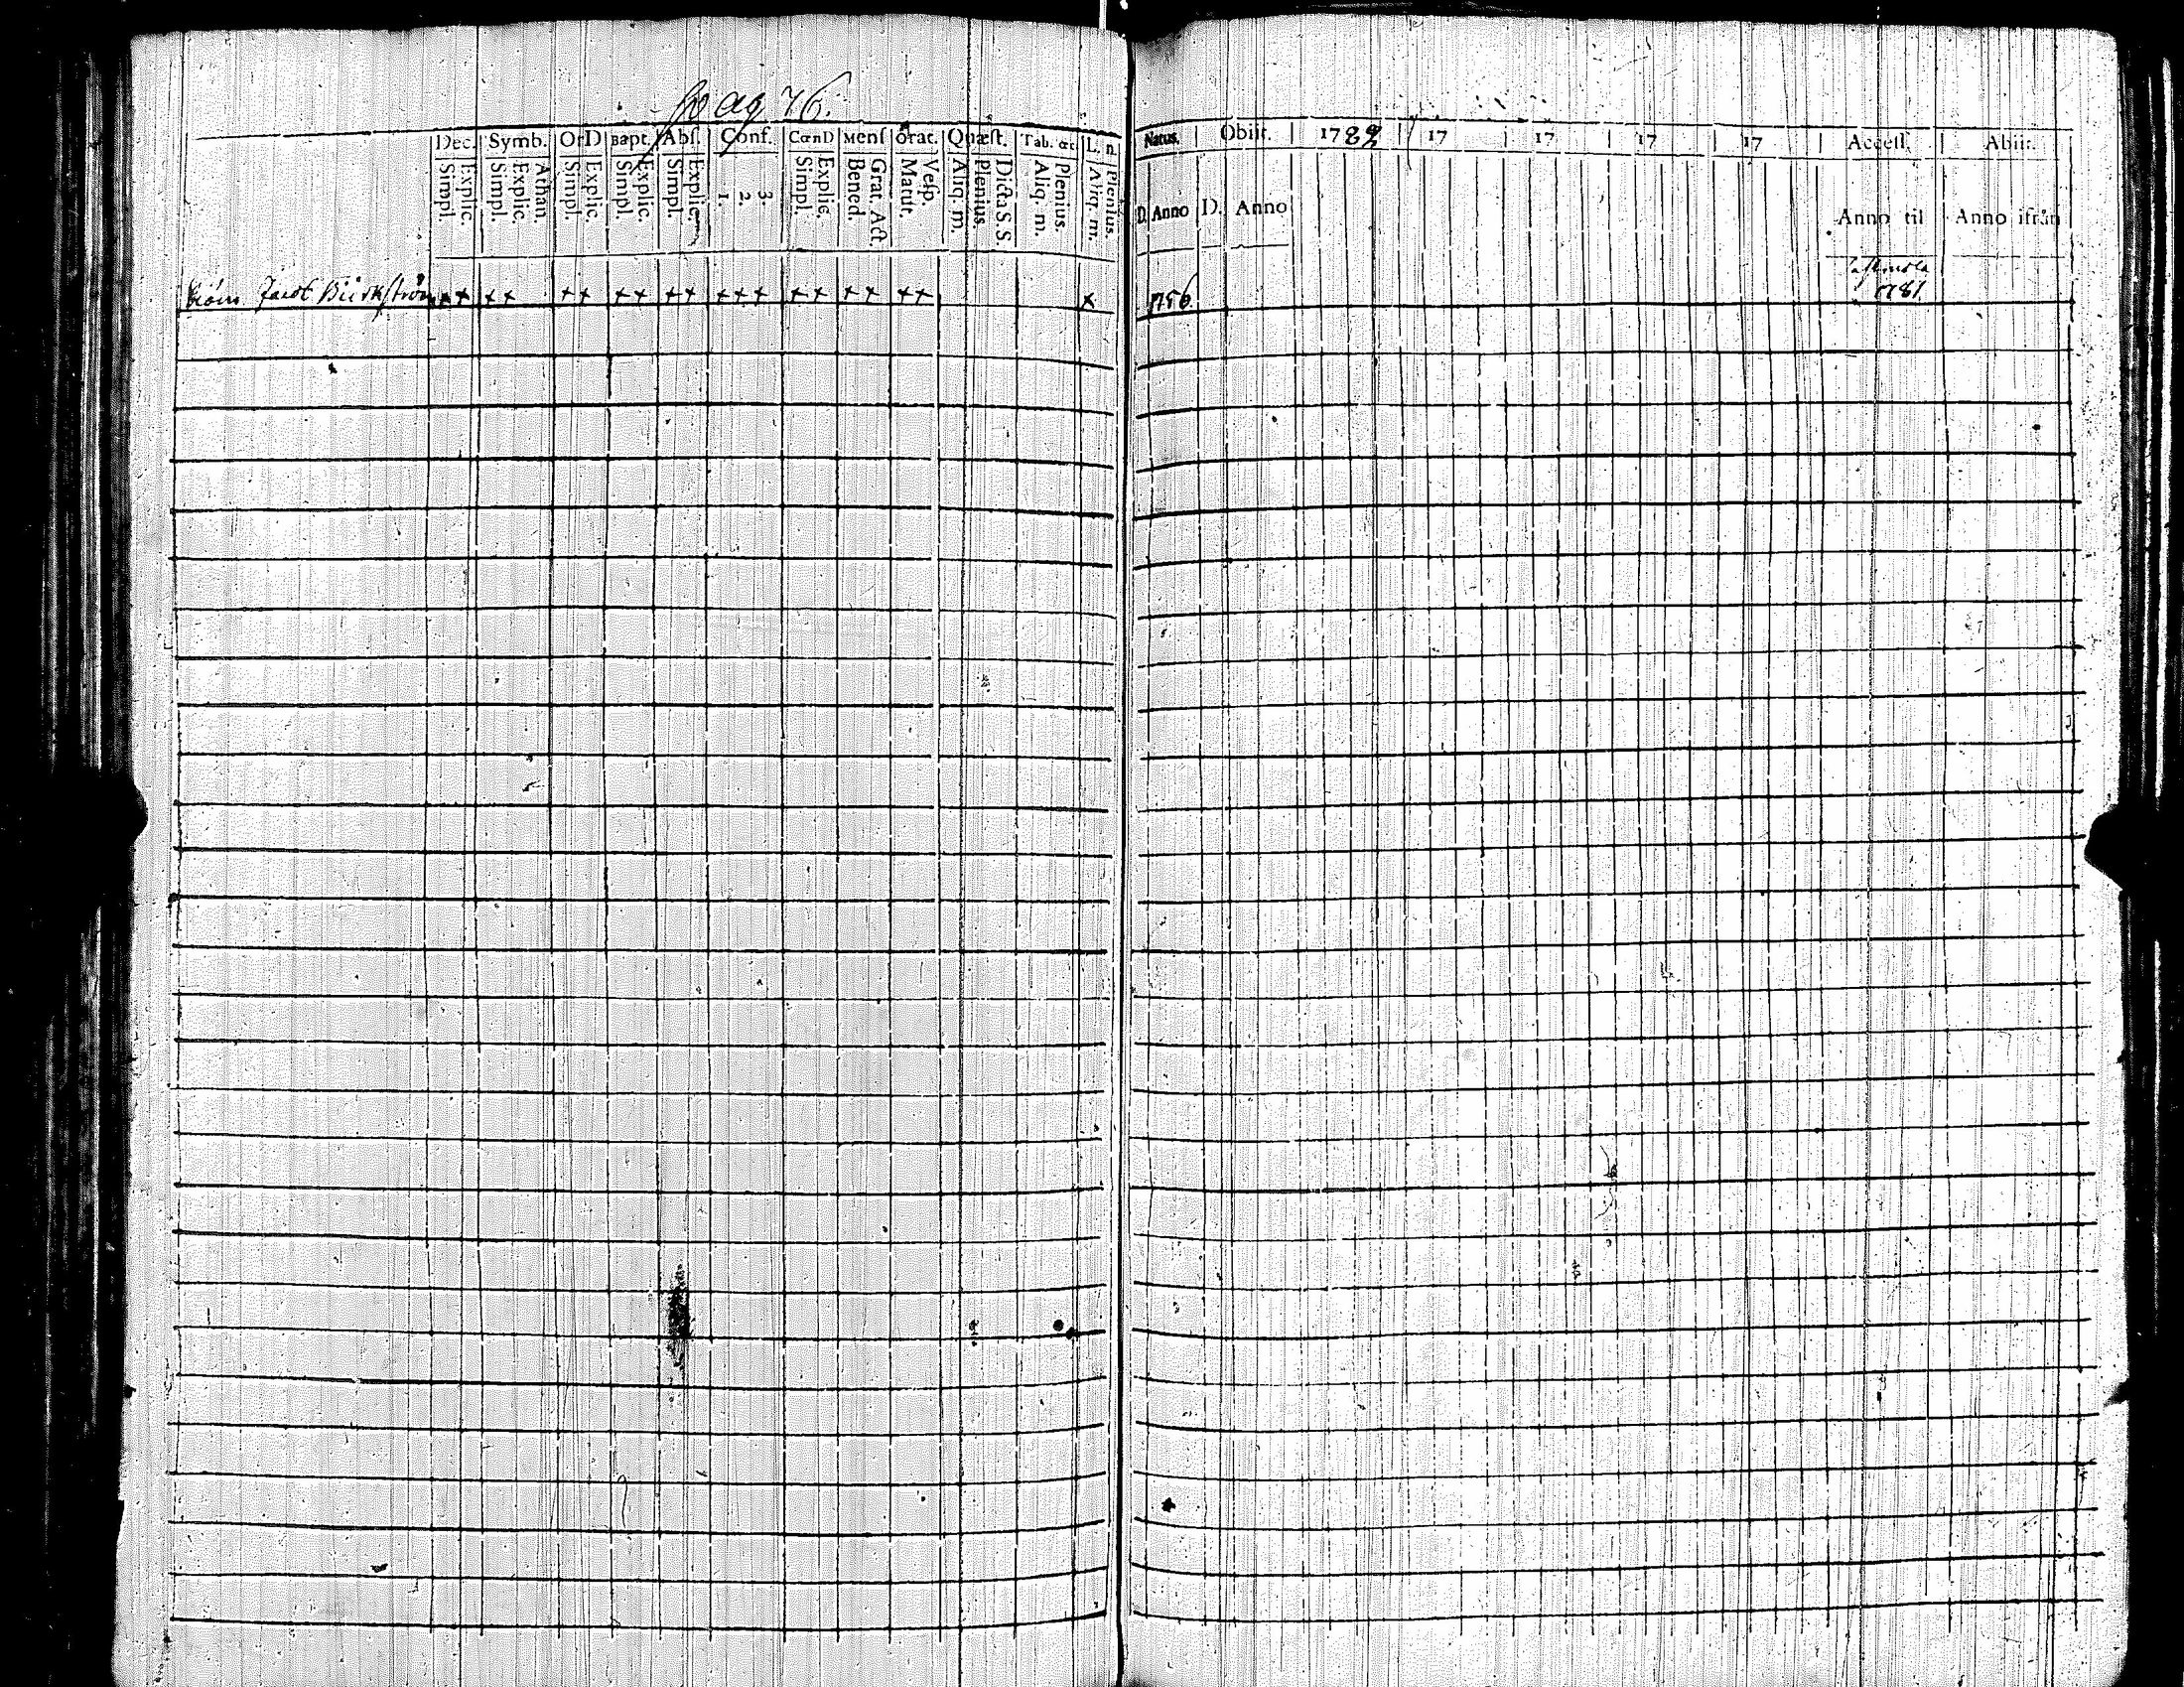 pag 76.
Dec. Symb. OrD Bapt. Abſ. Conf. CœnD Menſ Orat. Quæſt. Tab. œc. L. n. Natus. Obiit. 1782 17 17 17 17 Acceſſ. Abiit.
Simpl. Explic. Simpl. Explic. Athan. Simpl. Explic. Simpl. Explic. Simpl. Explic. 1. 2. 3. Simpl. Explic. Bened. Grat. Act. Matut. Veſp. Aliq. m. Plenius. Dicta S. S. Aliq. m. Plenius. Aliq. m. Plenius. D. Anno D. Anno Anno til Anno ifrån
Jacob Biörkström ++ ++ ++ ++ ++ +++ ++ ++ ++ + 1756 1781